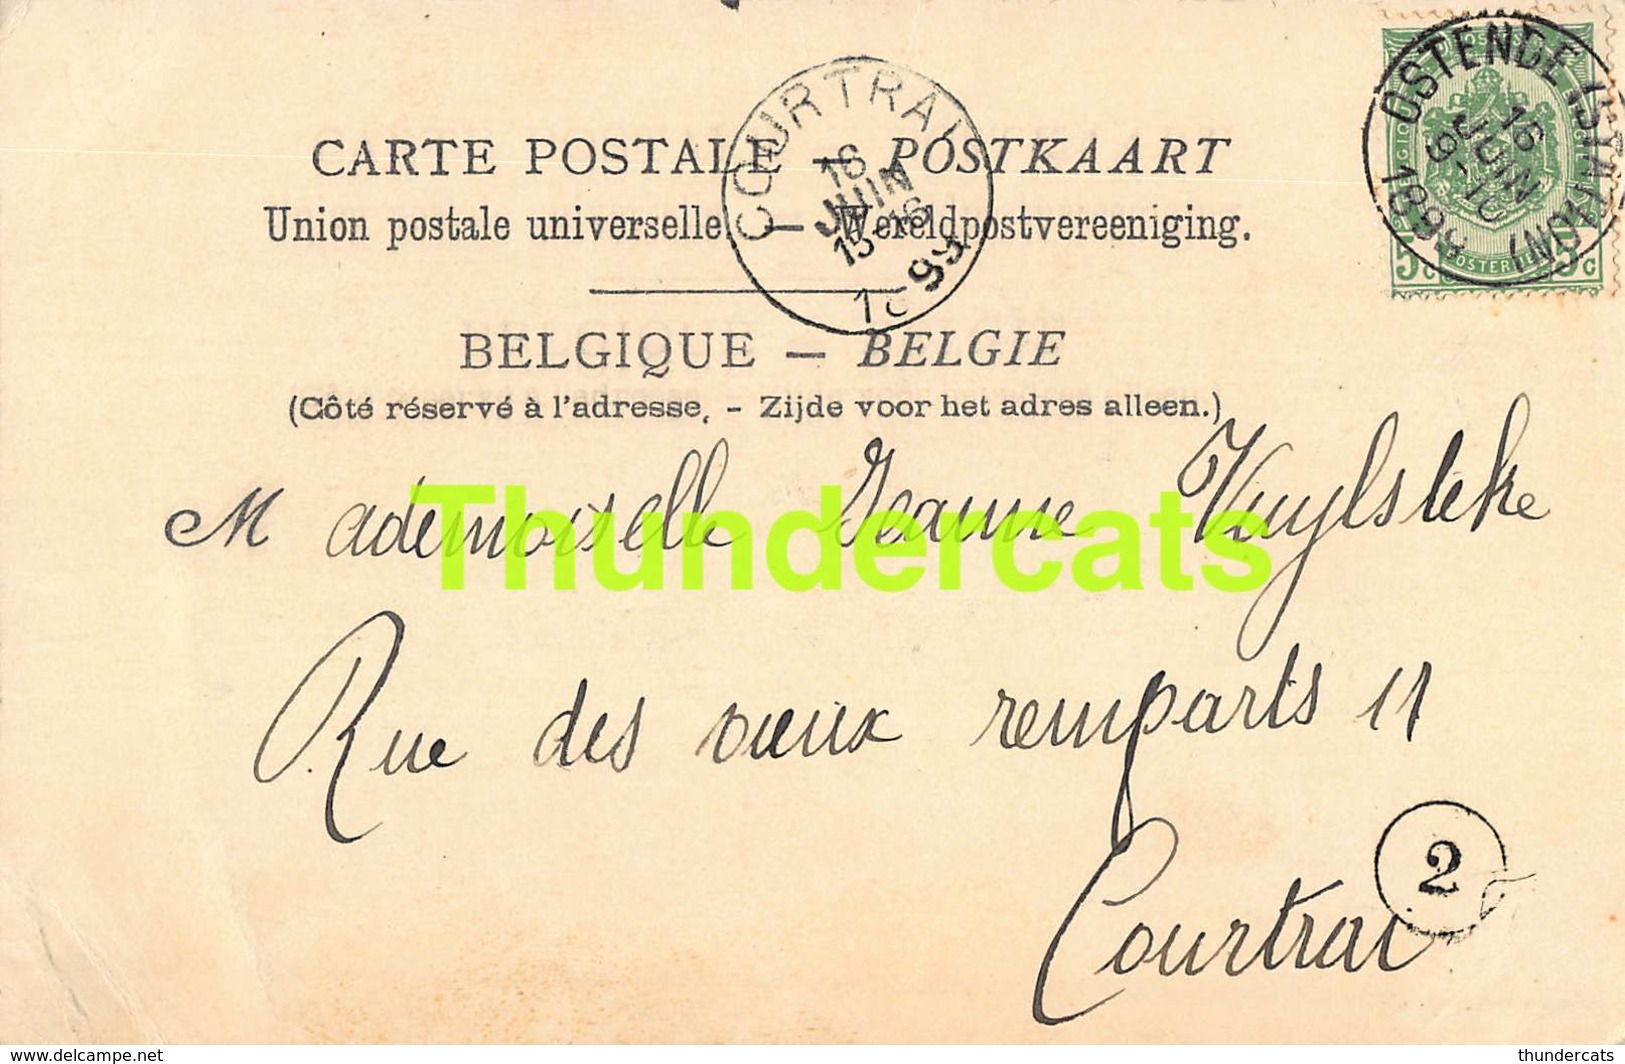 CARTE POSTALE — POSTKAART
Union postale universelle. — Wereldpostvereeniging.
BELGIQUE — BELGIE
(Côté réservé à l'adresse, - Zijde voor het adres alleen.)
COURTRAI
16
JUIN
15-16
1899
OSTENDE (STATION)
16
JUIN
9-10
1899
5c 5c
Mademoiselle Jeanne Vuylsteke
Rue des vieux remparts 11
Courtrai
2
Thundercats
www.delcampe.net
thundercats